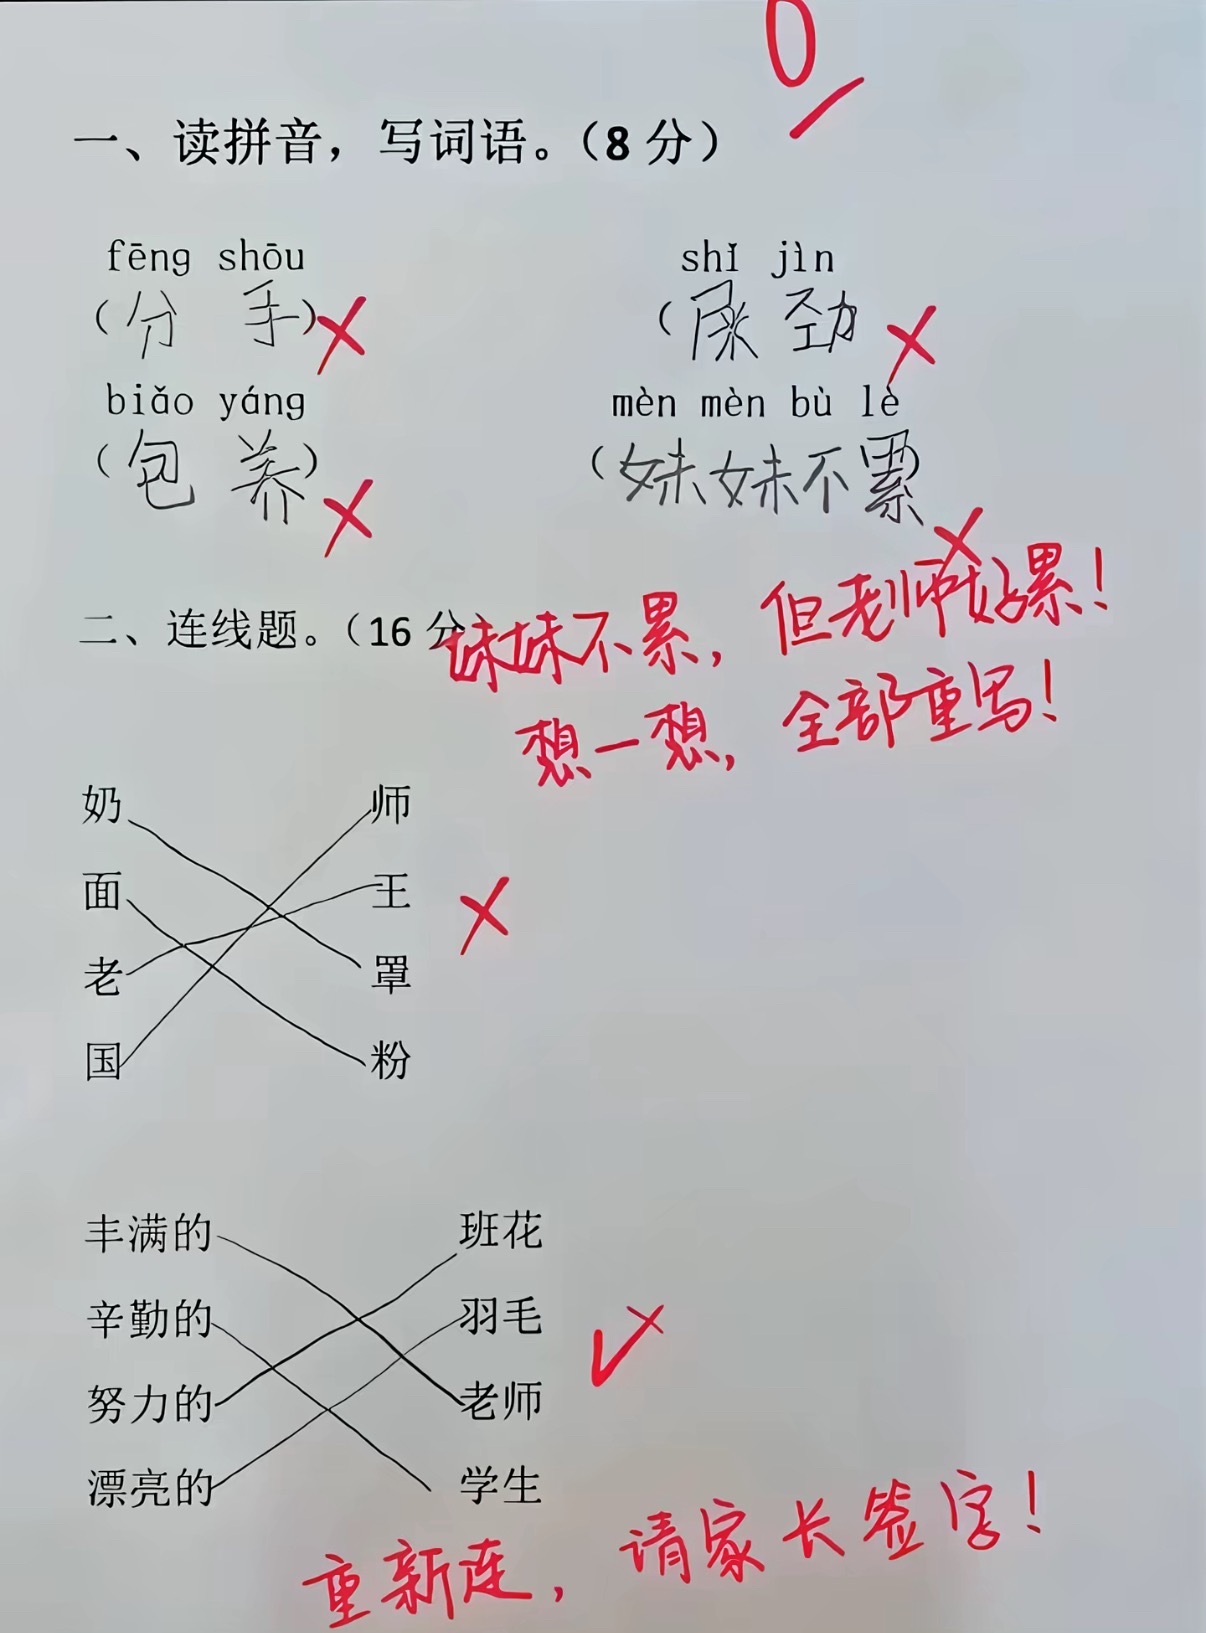 0
一、读拼音，写词语。（8分）
fēng shōu shǐ jìn
（分 手） （尿 劲
biǎo yáng mèn mèn bù lè
（包 养） （妹妹不累）
二、连线题。（16分）
妹妹不累，但老师好累！
想一想，全部重写！
奶 师
面 王
老 罩
国 粉
丰满的 班花
辛勤的 羽毛
努力的 老师
漂亮的 学生
重新连，请家长签字！